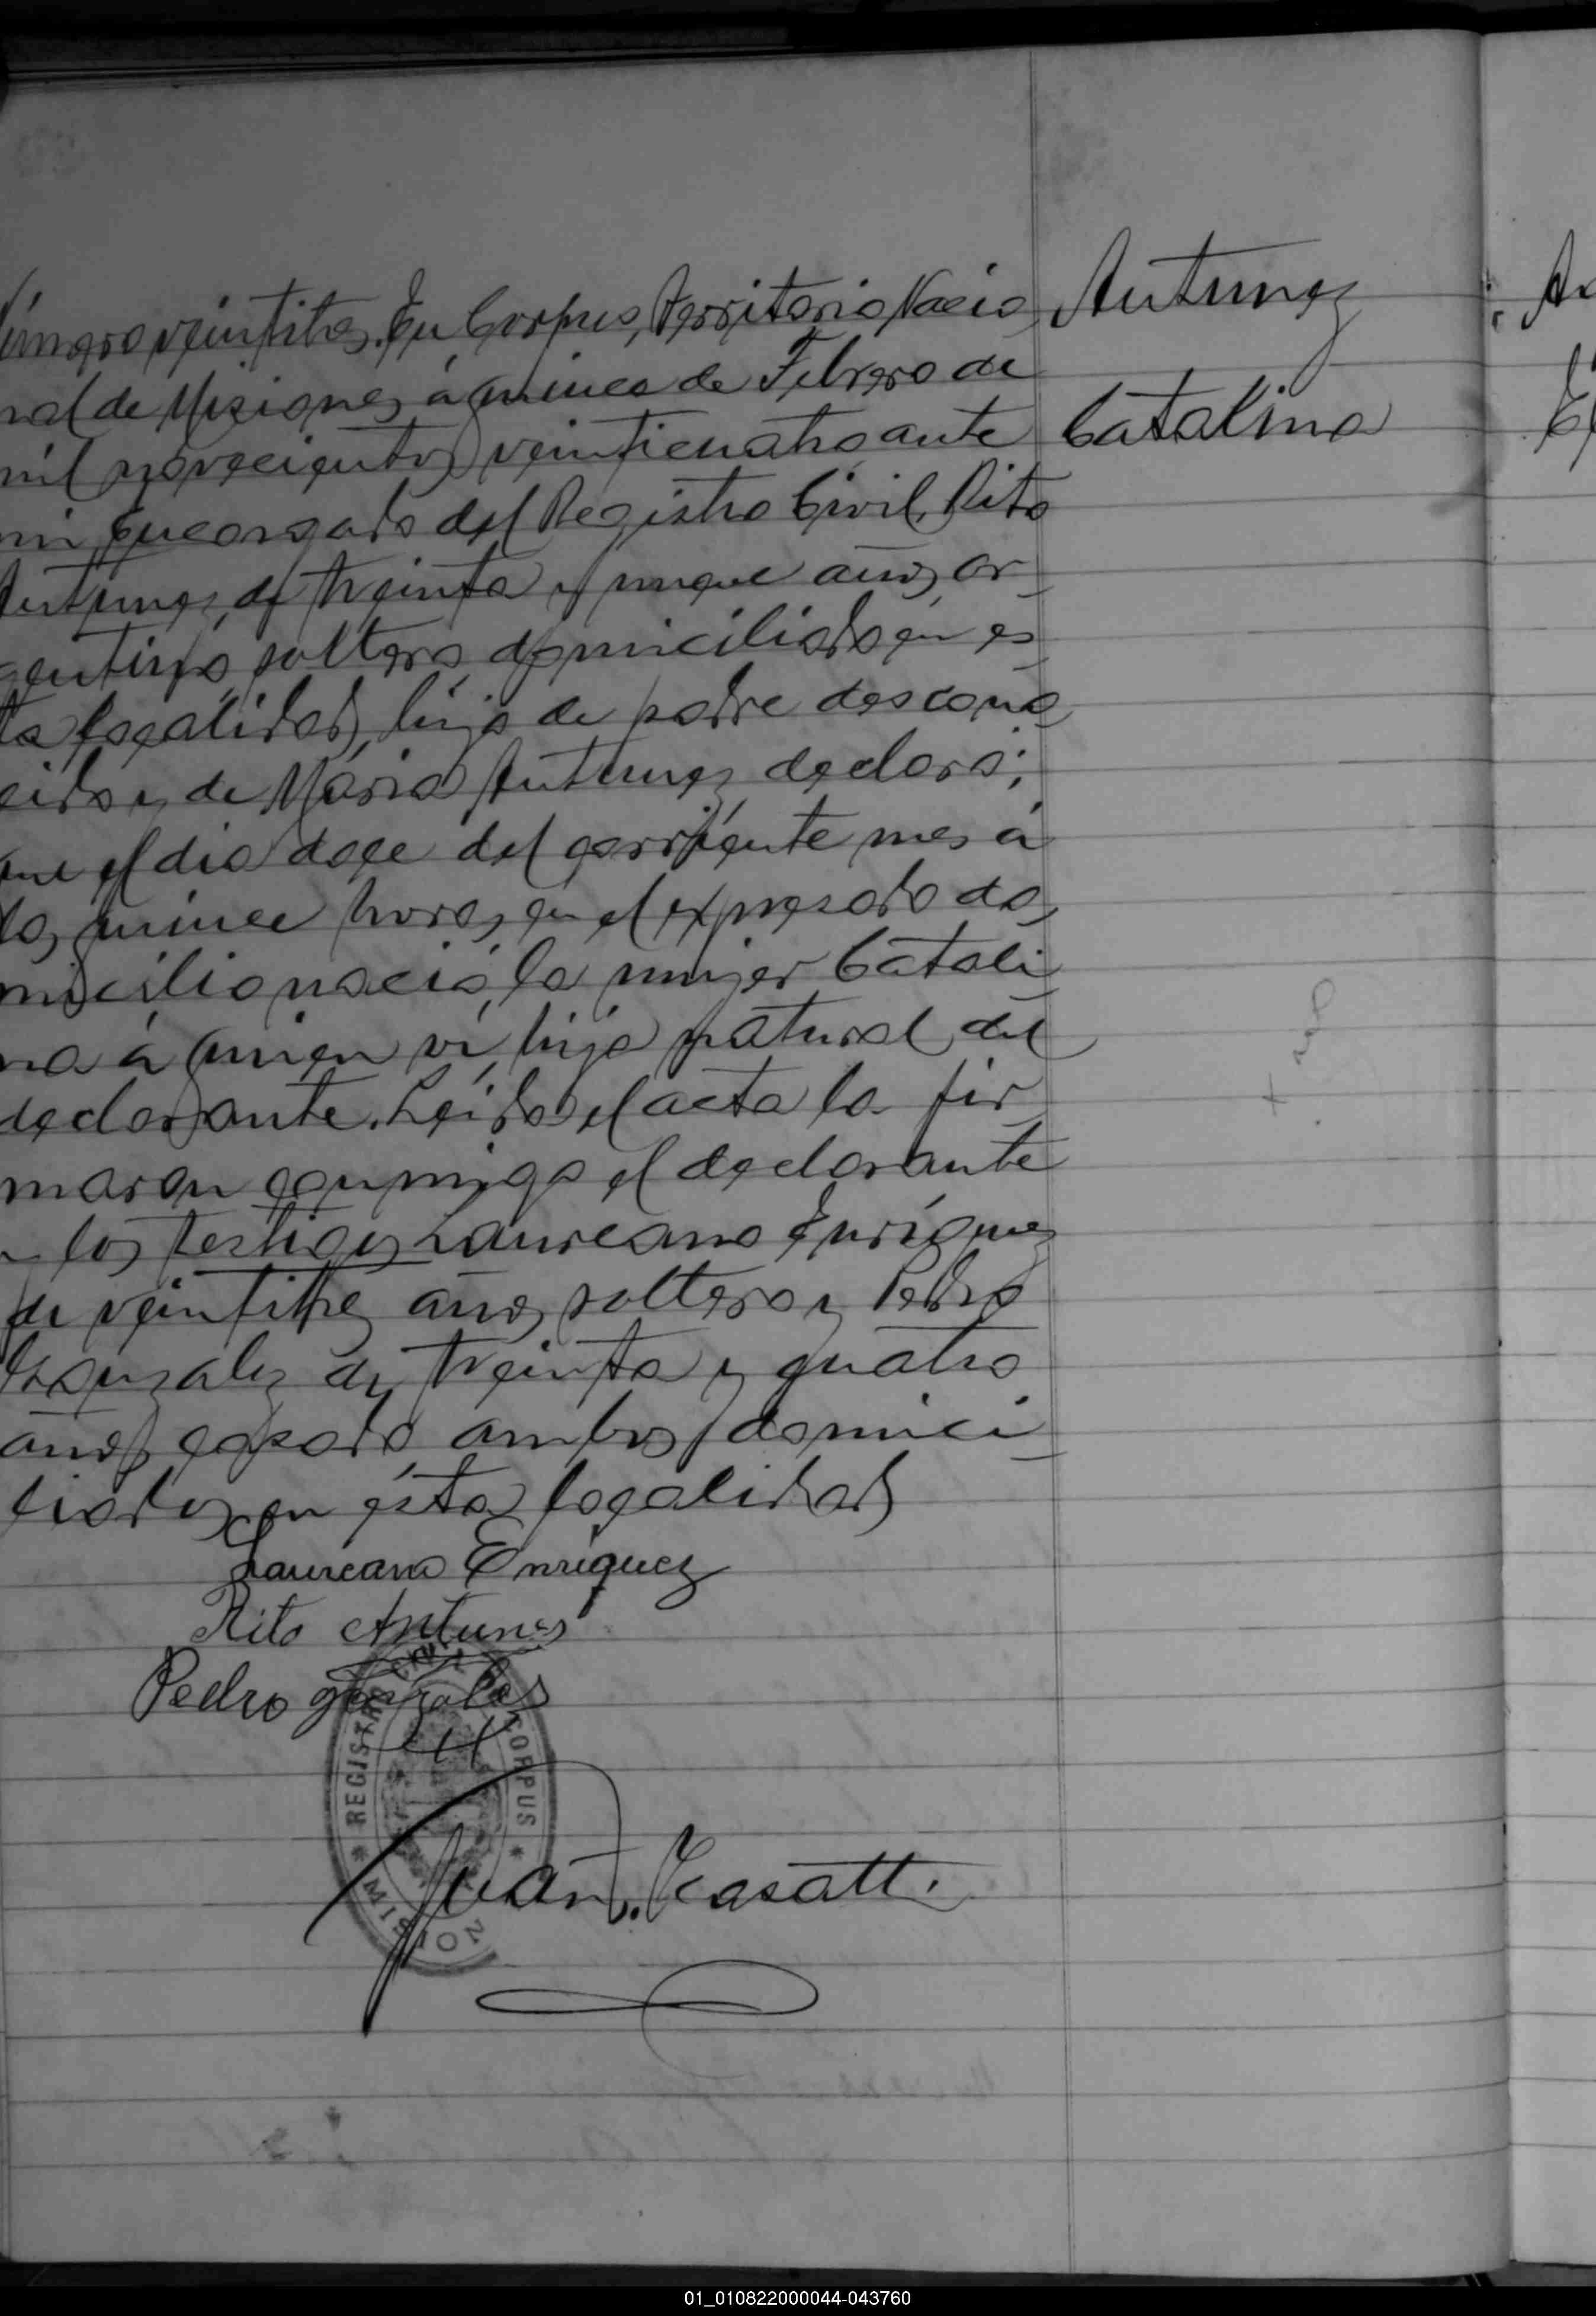 Número veintitres. En Corpus, Territorio Nacio
nal de Misiones á quince de Febrero de
mil novecientos veinticuatro ante
mi, Encargado del Registro Civil, Rito
Antunez, de treinta y nueve años, ar
gentino, soltero, domiciliado en es
ta localidad, hijo de padre descono
cido y de Maria Antunez declaró;
que el dia doce del corriente mes á
las quince horas, en el expresado do
micilio nació la mujer Catali
na á quien ví, hija natural del
declarante. Leida el acta la fir
maron conmigo el declarante
y los testigos Laureano Enríquez
de veintitres años, soltero y Pedro
Gonzalez de treinta y cuatro
años, casado, ambos domici
liados en ésta localidad
Laureano Enriquez
Rito Antunes
Pedro gonzales
REGISTRO CIVIL
CORPUS
MISIONES
Juan
Antunez
Catalina